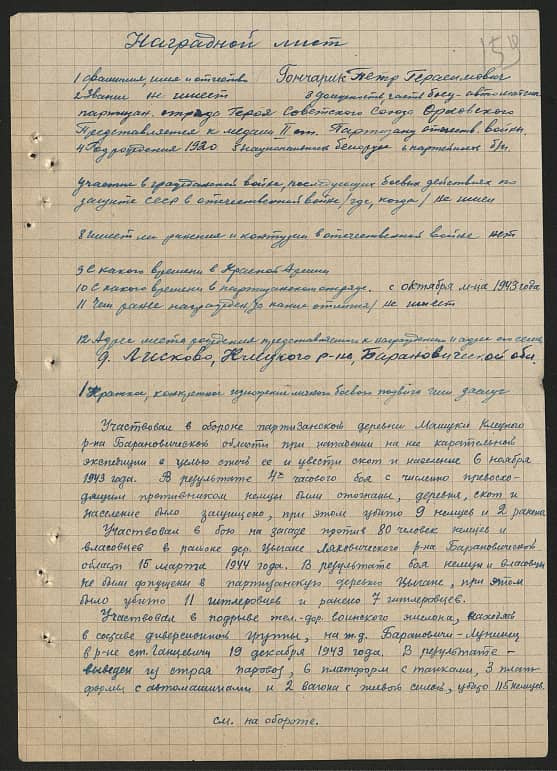 Наградной лист
1 фамилия, имя и отчество Гончарик Петр Герасимович
2 Звание не имеет 3 должность, часть боец-автоматчик
партизан. отряда Героя Советского Союза Орловского
Представляется к медали II ст. Партизану отечеств. войны
4 Год рождения 1920 5 национальность белорус 6 партийность б/п.
Участие в гражданской войне, последующих боевых действиях по
защите СССР в отечественной войне /где, когда/ не имел
8 имеет ли ранения и контузии в отечественной войне нет
9 С какого времени в Красной Армии
10 С какого времени в партизанском отряде. с октября м-ца 1943 года
11 Чем ранее награжден /за какие отличия/ не имеет
12 Адрес места рождения представляемого к награждению и адрес его семьи
д. Лисково, Клецкого р-на, Барановической обл.
1 Краткое, конкретное изложение личного боевого подвига или заслуг
Участвовал в обороне партизанской деревни Машуки Клецкого
р-на Барановической области при нападении на нее карательной
экспедиции с целью сжечь ее и увести скот и население 6 ноября
1943 года. В результате 4х часового боя с численно превосхо-
дящим противником немцы были отогнаны, деревня, скот и
население было защищено, при этом убито 9 немцев и 2 ранено
Участвовал в бою на засаде против 80 человек немцев и
власовцев в районе дер. Цыгане Ляховического р-на Барановической
области 15 марта 1944 года. В результате боя немцы и власовцы
не были допущены в партизанскую деревню Цыгане, при этом
было убито 11 гитлеровцев и ранено 7 гитлеровцев.
Участвовал в подрыве жел-дор. воинского эшелона, находясь
в составе диверсионной группы, на ж.д. Барановичи-Лунинец
в р-не ст. Ганцевичи 19 декабря 1943 года. В результате -
выведен из строя паровоз, 6 платформ с танками, 3 плат-
формы с автомашинами и 2 вагона с живой силой, убито 115 немцев.
см. на обороте.